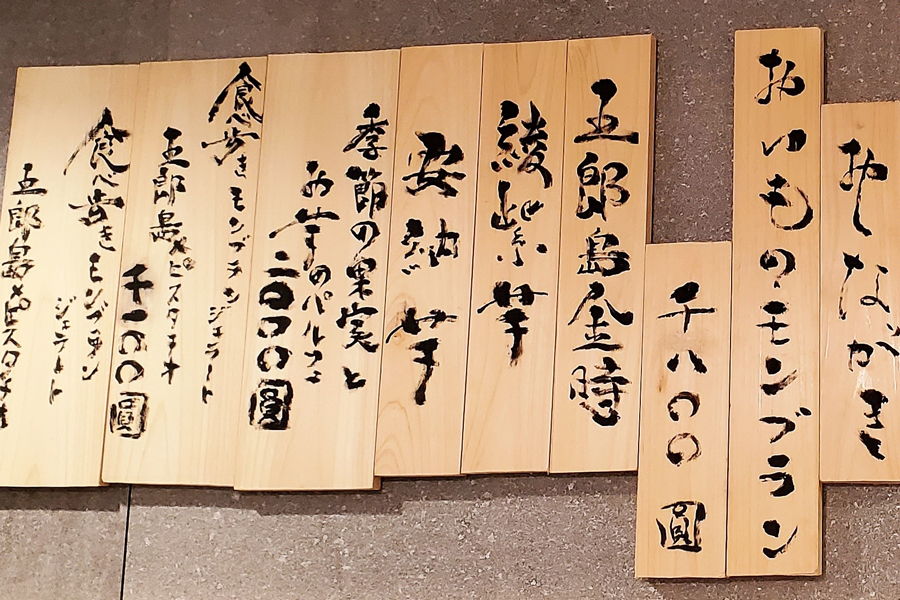 おしながき
おいものモンブラン
千八〇〇圓
五郎島金時
綾紫芋
安納芋
季節の果実と
お芋のパルフェ
二〇〇〇圓
食べ歩きモンブランジェラート
五郎島×ピスタチオ
千一〇〇圓
食べ歩きモンブラン
ジェラート
五郎島×ピスタチオ